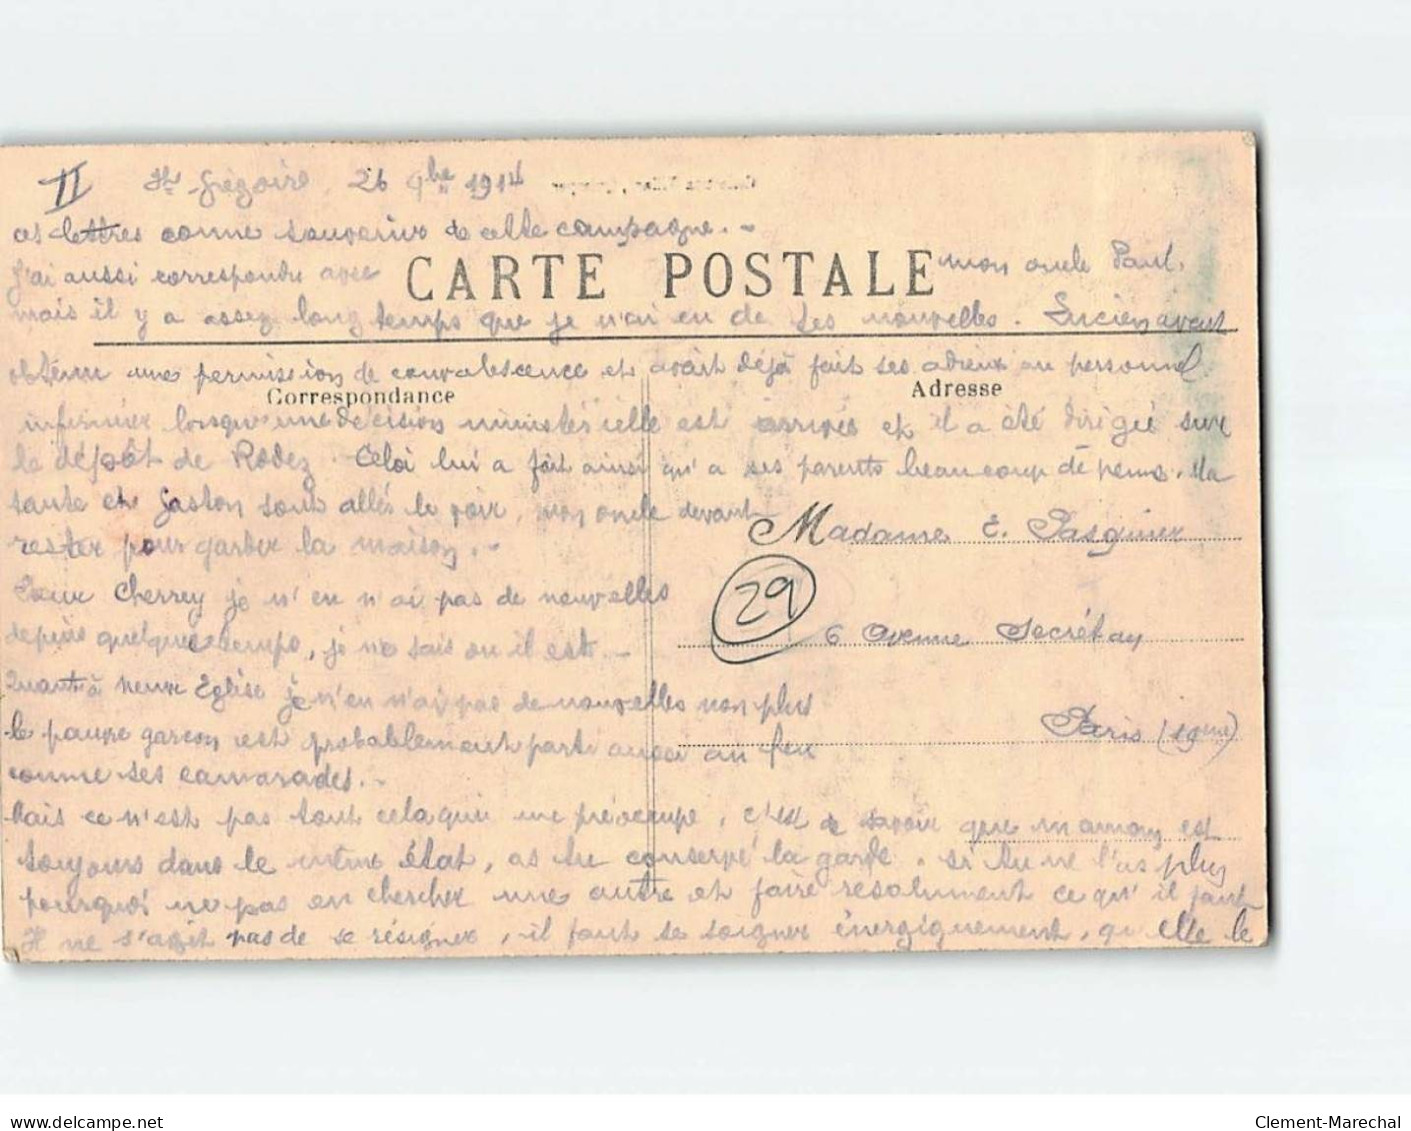 II St Grégoire, 26 9bre 1914
ces lettres comme souvenirs de cette campagne. -
CARTE POSTALE
J'ai aussi correspondu avec mon oncle Paul,
mais il y a assez longtemps que je n'ai eu de ses nouvelles. Lucien avait
obtenu une permission de convalescence et avait déjà fait ses adieux au personnel
Correspondance
Adresse
infirmier lorsqu'une décision ministérielle est arrivée et il a été dirigé sur
le dépôt de Rodez. Celà lui a fait ainsi qu'a ses parents beaucoup de peine. Ma
tante et Gaston sont allés le voir, mon oncle devant
rester pour garder la maison. -
Cherrey je n'en n'ai pas de nouvelles
depuis quelques temps, je ne sais ou il est. -
Quant à Neuve Eglise je n'en n'ai pas de nouvelles non plus
le pauvre garçon est probablement parti aussi au feu
comme ses camarades. -
Mais ce n'est pas tout cela qui me préoccupe, c'est de savoir que maman est
toujours dans le même état, as tu conservé la garde. si tu ne l'as plus
pourquoi ne pas en chercher une autre et faire resolument ce qu'il faut
Il ne s'agit pas de se résigner, il faut se soigner énergiquement, qu'elle le
Madame E. Pasquier
29
6 Avenue Secrétan
Paris (19eme)
delcampe.net
Clement-Marechal